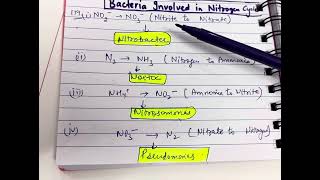 Bacteria Involved in Nitrogen Cycle
(i) NO₂⁻ → NO₃⁻ (Nitrite to Nitrate)
Nitrobacter
(ii) N₂ → NH₃ (Nitrogen to Ammonia)
Nostoc
(iii) NH₄⁺ → NO₂⁻ (Ammonia to Nitrite)
Nitrosomonas
(iv) NO₃⁻ → N₂ (Nitrate to Nitrogen)
Pseudomonas